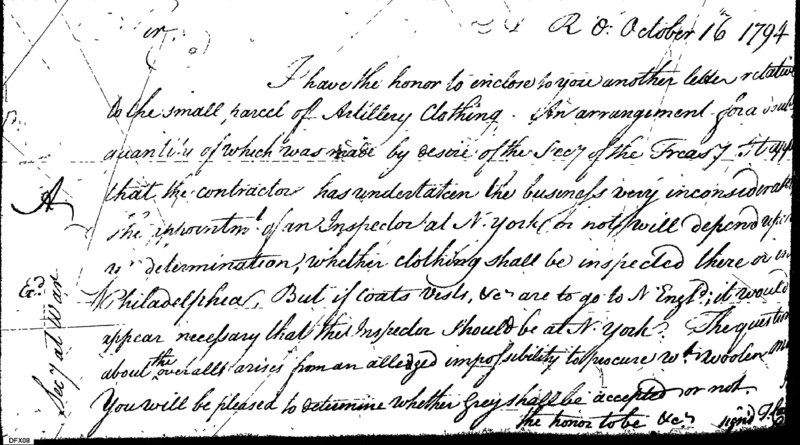 R O: October 16th 1794
Sir.
I have the honor to enclose to you another letter relative
to the small parcel of Artillery Clothing. An arrangement for a
quantity of which was made by desire of the Secy of the Treasy. It
that the contractor has undertaken the business very
the appointmt of an Inspector at N. York (or not) will depend upon
yr determination, whether clothing shall be inspected there or in
Philadelphia, But if coats vests, &c are to go to N Engld; it would
appear necessary that the Inspector should be at N. York. The question
about the overalls arises from an alledged impossibility to procure wt. woolen
You will be pleased to determine whether Grey shall be accepted or not.
the honor to be &c
signd T.
A
Secy at War
DFX08